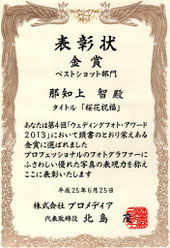 表彰状
金賞
ベストショット部門
那知上 智 殿
タイトル「桜花祝福」
あなたは第4回「ウェディングフォト・アワード
2013」において頭書のとおり栄えある
金賞に選ばれました
プロフェッショナルのフォトグラファーに
ふさわしい優れた写真の表現力を称え
ここに表彰いたします
平成25年6月25日
株式会社 プロメディア
代表取締役 北島 茂